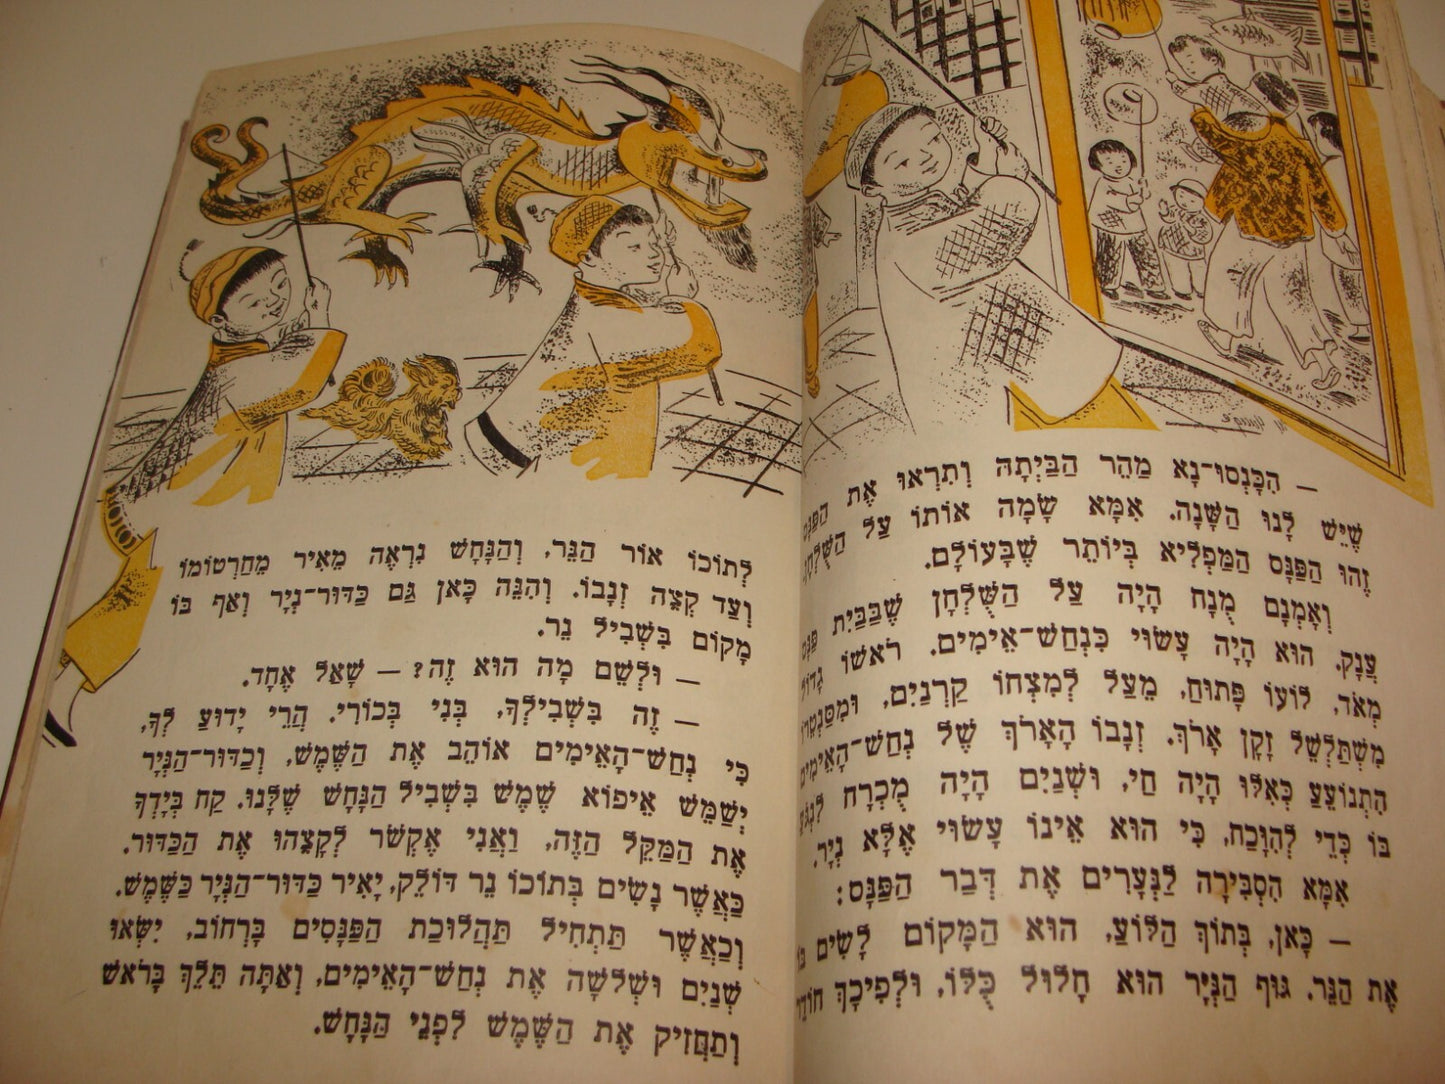 – הִכָּנְסוּ־נָא מַהֵר הַבַּיְתָה וְתִרְאוּ אֶת הַפַּנָּס
שֶׁיֵּשׁ לָנוּ הַשָּׁנָה. אִמָּא שָׂמָה אוֹתוֹ עַל הַשֻּׁלְחָן
זֶהוּ הַפַּנָּס הַמַּפְלִיא בְּיוֹתֵר שֶׁבָּעוֹלָם.
וְאָמְנָם מֻנָּח הָיָה עַל הַשֻּׁלְחָן שֶׁבַּבַּיִת פַּנָּס
עֲנָק. הוּא הָיָה עָשׂוּי כִּנְחַשׁ־אֵימִים. רֹאשׁוֹ גָּדוֹל
מְאֹד, לוֹעוֹ פָּתוּחַ, מֵעַל לְמִצְחוֹ קַרְנַיִם, וּמִסַּנְטֵרוֹ
מִשְׁתַּלְשֵׁל זָקָן אָרֹךְ. זְנָבוֹ הָאָרֹךְ שֶׁל נְחַשׁ־הָאֵימִים
הִתְנוֹעֵעַ כְּאִלּוּ הָיָה חַי, וּשְׁנַיִם הָיָה מֻכְרָח לִנְגֹּעַ
בּוֹ כְּדֵי לְהִוָּכַח, כִּי הוּא אֵינוֹ עָשׂוּי אֶלָּא נְיָר.
אִמָּא הִסְבִּירָה לַנְּעָרִים אֶת דְּבַר הַפַּנָּס:
– כָּאן, בְּתוֹךְ הַלּוֹעַ, הוּא הַמָּקוֹם לָשִׂים בּוֹ
אֶת הַנֵּר. גּוּף הַנְּיָר הוּא חָלוּל כֻּלּוֹ, וּלְפִיכָךְ חוֹדֵר
לְתוֹכוֹ אוֹר הַנֵּר, וְהַנָּחָשׁ נִרְאֶה מֵאִיר מֵחַרְטוֹמוֹ
וְעַד קְצֵה זְנָבוֹ. וְהִנֵּה כָּאן גַּם כַּדּוּר־נְיָר וְאַף בּוֹ
מָקוֹם בִּשְׁבִיל נֵר.
– וּלְשֵׁם מָה הוּא זֶה? – שָׁאַל אֶחָד.
– זֶה בִּשְׁבִילְךָ, בְּנִי בְּכוֹרִי. הֲרֵי יָדוּעַ לְךָ,
כִּי נְחַשׁ־הָאֵימִים אוֹהֵב אֶת הַשֶּׁמֶשׁ, וְכַדּוּר־הַנְּיָר
יְשַׁמֵּשׁ אֵיפוֹא שֶׁמֶשׁ בִּשְׁבִיל הַנָּחָשׁ שֶׁלָּנוּ. קַח בְּיָדְךָ
אֶת הַמַּקֵּל הַזֶּה, וַאֲנִי אֶקְשֹׁר לְקָצֵהוּ אֶת הַכַּדּוּר.
כַּאֲשֶׁר נָשִׂים בְּתוֹכוֹ נֵר דּוֹלֵק, יָאִיר כַּדּוּר־הַנְּיָר כַּשֶּׁמֶשׁ.
וְכַאֲשֶׁר תַּתְחִיל תַּהֲלוּכַת הַפַּנָּסִים בָּרְחוֹב, יִשְּׂאוּ
שְׁנַיִם וּשְׁלֹשָׁה אֶת נְחַשׁ־הָאֵימִים, וְאַתָּה תֵּלֵךְ בָּרֹאשׁ
וְתַחֲזִיק אֶת הַשֶּׁמֶשׁ לִפְנֵי הַנָּחָשׁ.